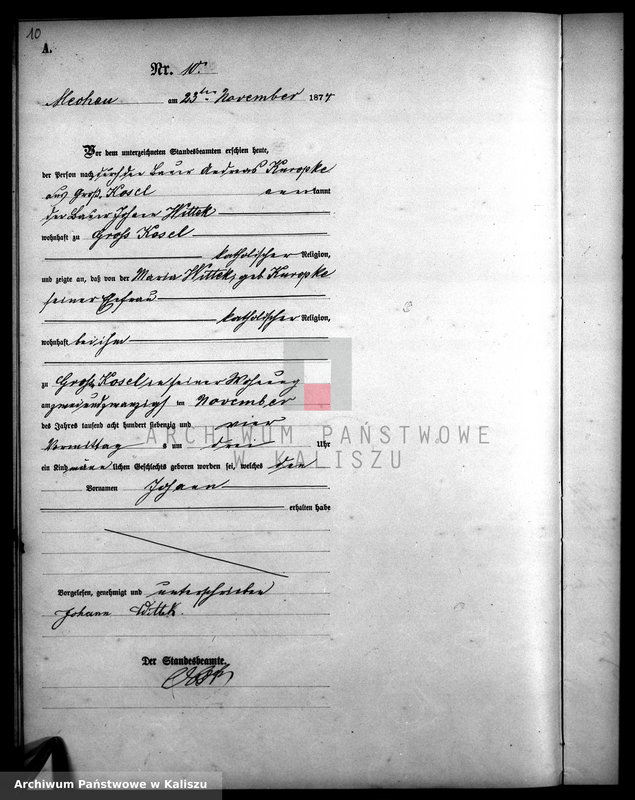 10
A.
Nr. 10.
Mechau am 23ten November 1874
Vor dem unterzeichneten Standesbeamten erschien heute,
der Person nach durch den Bauer Andreas Kuropke
aus Groß Kosel anerkannt
der Bauer Johann Wittek
wohnhaft zu Groß Kosel
katholischer Religion,
und zeigte an, daß von der Maria Wittek, geb Kuropke
seiner Eefrau
katholischer Religion,
wohnhaft bei ihm
zu Groß Kosel in seiner Wohnung
am zweiundzwanzigst ten November
des Jahres tausend acht hundert siebenzig und vier
Vormittag s um drei Uhr
ein Kind männlichen Geschlechts geboren worden sei, welches den
Vornamen Johann
erhalten habe
Vorgelesen, genehmigt und unterschrieben
Johann Wittek.
Der Standesbeamte.
ARCHIWUM PAŃSTWOWE
W KALISZU
Archiwum Państwowe w Kaliszu